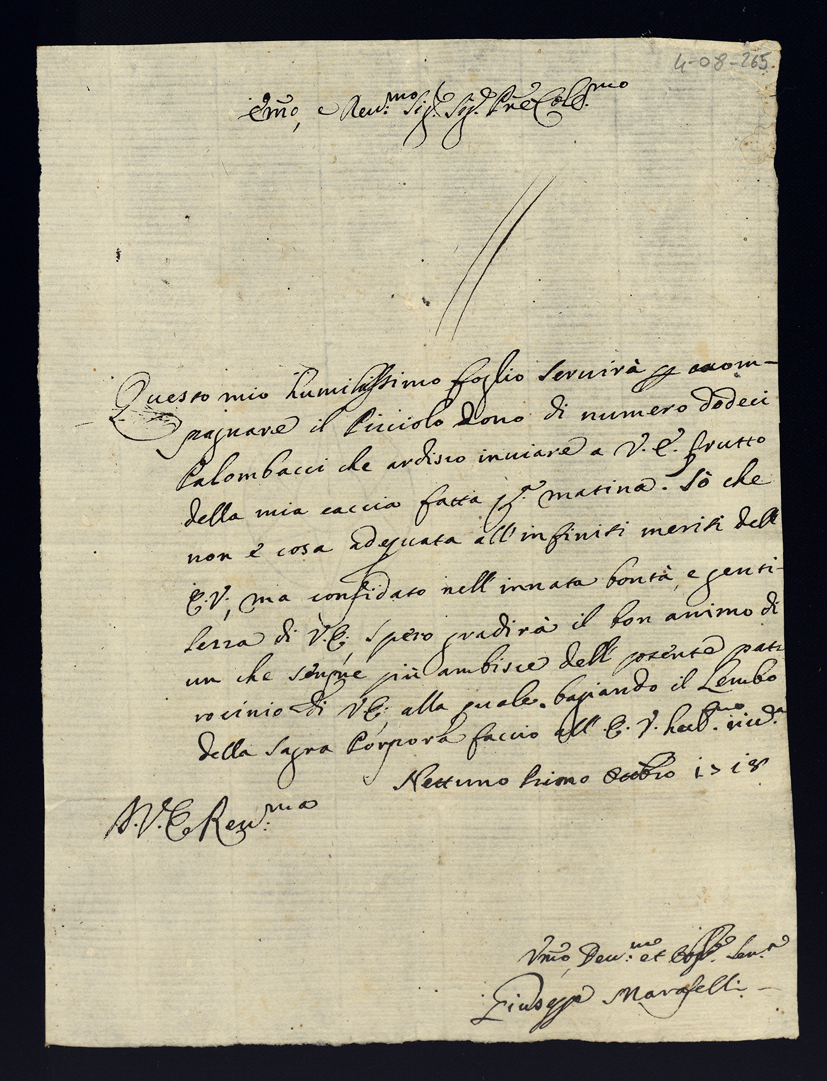 4-08-265.
Em̃o, e Reu.mo Sig.r Sig.r Pr̃e Col.mo
Questo mio humilissimo foglio seruirà p accom-
pagnare il Picciolo Dono di numero dodeci
Palombacci che ardisco inuiare a V.E. frutto
della mia caccia fatta matina. Sò che
non è cosa adequata all'infiniti meriti dell
E.V, ma confidato nell'innata bontà, e genti-
lezza di V.E; spero gradirà il bon animo di
un che sempre più ambisce dell potente pat
rocinio di VE; alla quale. baciando il Lembo
della Sagra Porpora faccio all'E.V. hu.mo
Nettuno Primo 1718
A.V.E. Reu.ma
Vm̃o, Deu.mo et Ser.re
Giuseppe Marafelli.